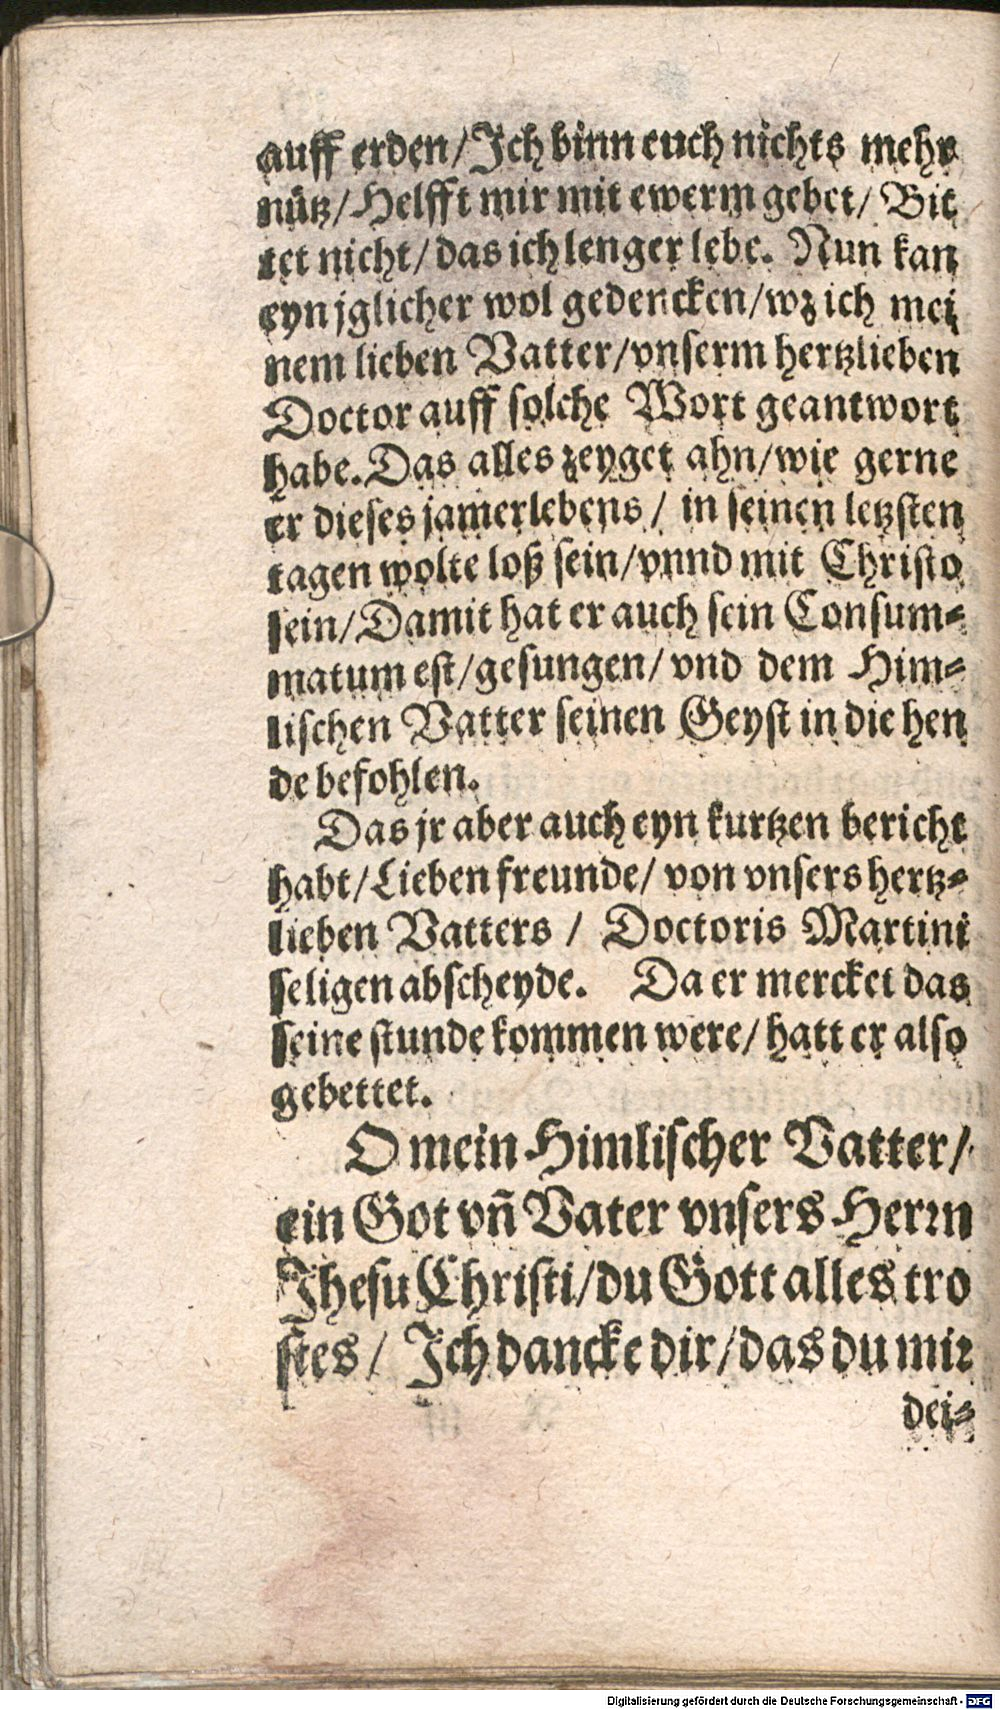 auff erden/Ich binn euch nichts mehr
nütz/Helfft mir mit ewerm gebet/ Bit
tet nicht/das ich lenger lebe. Nun kan
eyn jglicher wol gedencken/wz ich mei
nem lieben Vatter/vnserm hertzlieben
Doctor auff solche Wort geantwort
habe. Das alles zeyget ahn/wie gerne
er dieses jamerlebens/ in seinen letzsten
tagen wolte loß sein/vnnd mit Christo
sein/Damit hat er auch sein Consum-
matum est/gesungen/ vnd dem Him-
lischen Vatter seinen Geyst in die hen
de befohlen.
Das jr aber auch eyn kurtzen bericht
habt/Lieben freunde/ von vnsers hertz-
lieben Vatters / Doctoris Martini
seligen abscheyde. Da er mercket das
seine stunde kommen were/ hatt er also
gebettet.
O mein Himlischer Vatter/
ein Got vñ Vater vnsers Herrn
Jhesu Christi/du Gott alles tro
stes/ Ich dancke dir/das du mir
dei-
Digitalisierung gefördert durch die Deutsche Forschungsgemeinschaft - DFG